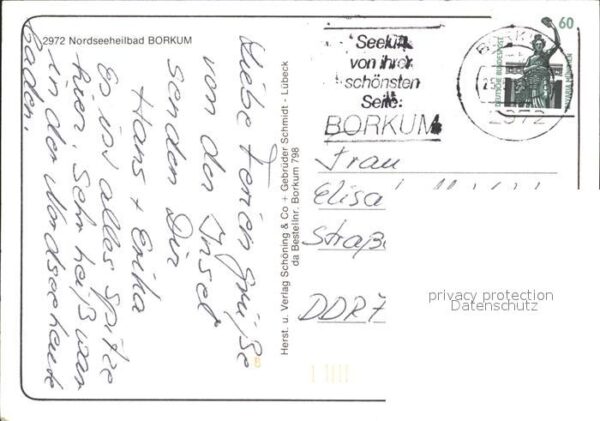 2972 Nordseeheilbad BORKUM
Liebe Feriengrüße
von der Insel
senden Dir
Hans + Erika
Es ist alles Spitze
hier. Sehr heiß war
in der Nordsee heute
baden.
Herst. u. Verlag Schöning & Co + Gebrüder Schmidt - Lübeck
da Bestellnr. Borkum 798
von ihrer
schönsten
Seite:
BORKUM
2972
60
DEUTSCHE BUNDESPOST
BAVARIA MÜNCHEN
Frau
Elisa
Straß
DDR 7
privacy protection
Datenschutz